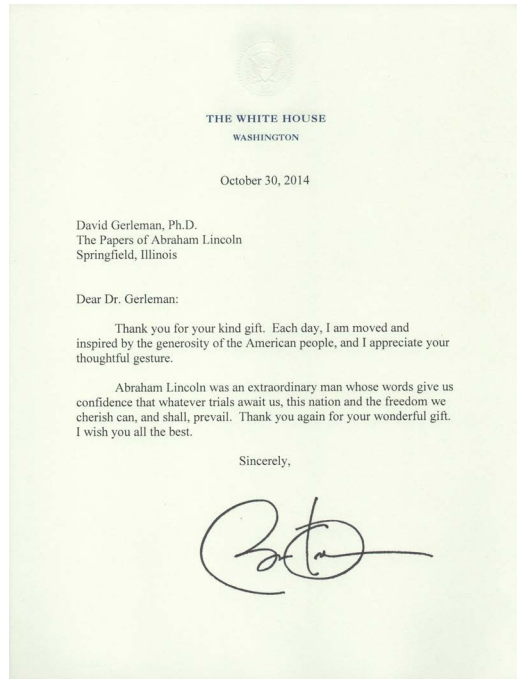 THE WHITE HOUSE
WASHINGTON
October 30, 2014
David Gerleman, Ph.D.
The Papers of Abraham Lincoln
Springfield, Illinois
Dear Dr. Gerleman:
Thank you for your kind gift.  Each day, I am moved and
inspired by the generosity of the American people, and I appreciate your
thoughtful gesture.
Abraham Lincoln was an extraordinary man whose words give us
confidence that whatever trials await us, this nation and the freedom we
cherish can, and shall, prevail.  Thank you again for your wonderful gift.
I wish you all the best.
Sincerely,